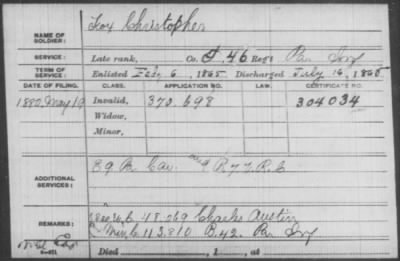 NAME OF SOLDIER: Fox Christopher
SERVICE: Late rank, Co. F. 46 Reg't Pa Inf
TERM OF SERVICE: Enlisted Feby 6, 1865 Discharged July 16, 1865
DATE OF FILING. CLASS. APPLICATION NO. LAW. CERTIFICATE NO.
1880 May 19 Invalid, 370.698 304034
Widow,
Minor,
ADDITIONAL SERVICES: B 9 Cav. and
REMARKS: C 48.069 Charles Austin
Min C 113.810 B. 42. Pa Inf
Died , 1 , at